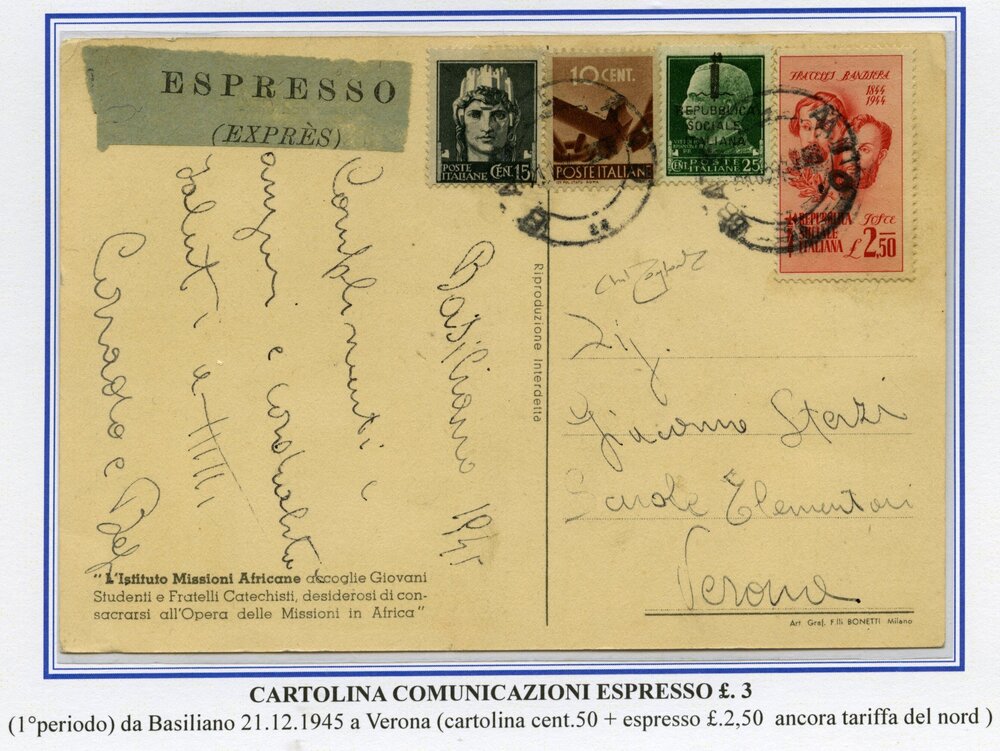 ESPRESSO
(EXPRÈS)
POSTE ITALIANE CEN. 15
10 CENT.
POSTE ITALIANE
REPUBBLICA
SOCIALE
ITALIANA
POSTE
CENT. ITALIANE 25
FRATELLI BANDIERA
1844
1944
LA REPUBBLICA
SOCIALE
ITALIANA
£ 2,50
Complimenti
auguri e cordiali
saluti a tutti
Corrado e
Basiliano 1945
Riproduzione Interdetta
Sig.
Giacomo Sterzi
Scuole Elementari
Verona
"L'Istituto Missioni Africane accoglie Giovani
Studenti e Fratelli Catechisti, desiderosi di con-
sacrarsi all'Opera delle Missioni in Africa"
Art Graf. F.lli BONETTI Milano
CARTOLINA COMUNICAZIONI ESPRESSO £. 3
(1°periodo) da Basiliano 21.12.1945 a Verona (cartolina cent.50 + espresso £.2,50 ancora tariffa del nord )